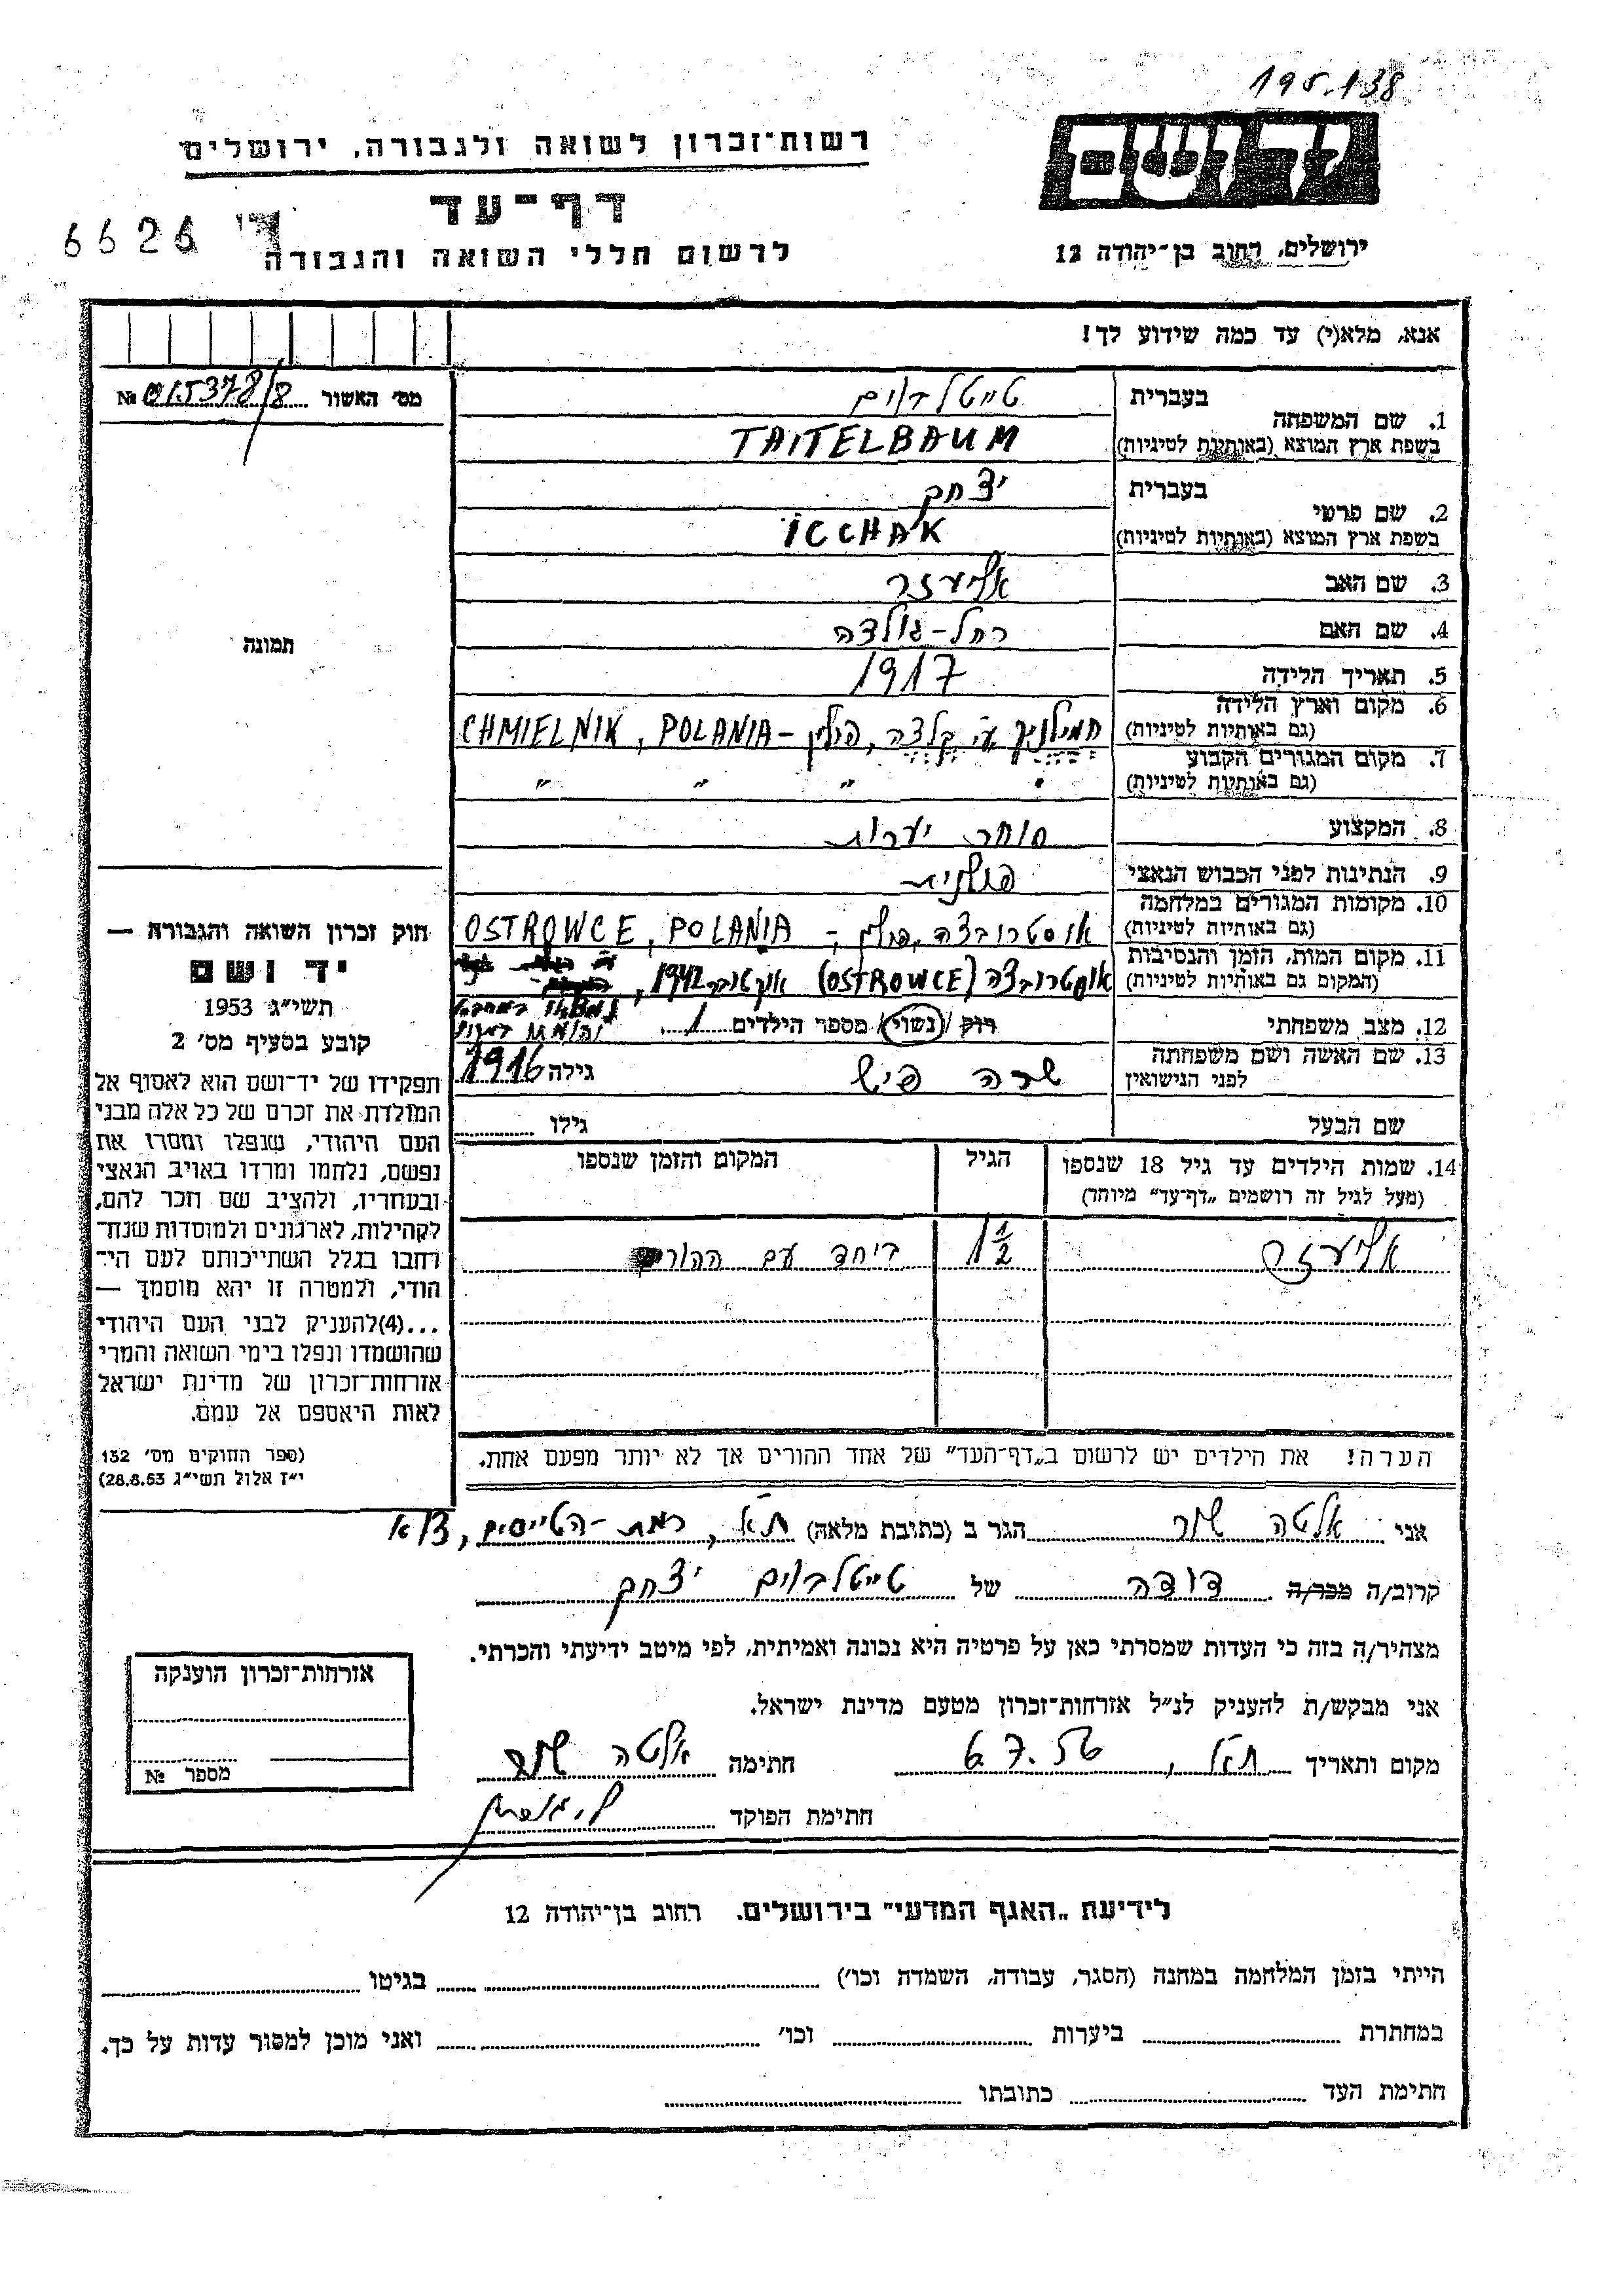 195.138
יד ושם
רשות־זכרון לשואה ולגבורה, ירושלים
דף־עד
6626
לרשום חללי השואה והגבורה
ירושלים, רחוב בן־יהודה 12
אנא, מלא(י) עד כמה שידוע לך!
מס׳ האשור № 015378/8
1. שם המשפחה
בעברית טייטלבוים
בשפת ארץ המוצא (באותיות לטיניות) TAITELBAUM
2. שם פרטי
בעברית יצחק
בשפת ארץ המוצא (באותיות לטיניות) ICCHAK
3. שם האב אליעזר
4. שם האם רחל-גולדה
5. תאריך הלידה 1917
6. מקום וארץ הלידה
(גם באותיות לטיניות) חמילניק ע״י קלצה, פולין - CHMIELNIK, POLANIA
7. מקום המגורים הקבוע
(גם באותיות לטיניות) " " " "
8. המקצוע סוחר יערות
9. הנתינות לפני הכבוש הנאצי פולנית
10. מקומות המגורים במלחמה
(גם באותיות לטיניות) אוסטרובצה, פולין - OSTROWCE, POLANIA
11. מקום המות, הזמן והנסיבות
(המקום גם באותיות לטיניות) אוסטרובצה (OSTROWCE) אוקטובר 1942,
נמצאו במחבוא
והומתו
12. מצב משפחתי רוק / נשוי / מספר הילדים 1
13. שם האשה ושם משפחתה
לפני הנישואין שרה פיש גילה 1916
שם הבעל גילו
14. שמות הילדים עד גיל 18 שנספו
(מעל לגיל זה רושמים „דף־עד” מיוחד)
הגיל
המקום והזמן שנספו
אליעזר 1½ ביחד עם ההורים
הערה! את הילדים יש לרשום ב„דף־העד” של אחד ההורים אך לא יותר מפעם אחת.
תמונה
חוק זכרון השואה והגבורה —
יד ושם
תשי״ג 1953
קובע בסעיף מס׳ 2
תפקידו של יד־ושם הוא לאסוף אל
המולדת את זכרם של כל אלה מבני
העם היהודי, שנפלו ומסרו את
נפשם, נלחמו ומרדו באויב הנאצי
ובעוזריו, ולהציב שם וזכר להם,
לקהילות, לארגונים ולמוסדות שנח־
רחבו בגלל השתייכותם לעם הי־
הודי, ולמטרה זו יהא מוסמך —
...(4)להעניק לבני העם היהודי
שהושמדו ונפלו בימי השואה והמרי
אזרחות־זכרון של מדינת ישראל
לאות היאספם אל עמם.
(ספר החוקים מס׳ 132
י״ז אלול תשי״ג 28.8.53)
אני אלטה הגר ב (כתובת מלאה) ת״א, רמת-הטייסים,
קרוב/ה מכר/ה דודה של טייטלבוים יצחק
מצהיר/ה בזה כי העדות שמסרתי כאן על פרטיה היא נכונה ואמיתית, לפי מיטב ידיעתי והכרתי.
אני מבקש/ת להעניק לנ״ל אזרחות־זכרון מטעם מדינת ישראל.
מקום ותאריך ת״א, 6.7.56 חתימה אלטה
חתימת הפוקד
אזרחות־זכרון הוענקה
מספר №
לידיעת „האגף המדעי” בירושלים. רחוב בן־יהודה 12
הייתי בזמן המלחמה במחנה (הסגר, עבודה, השמדה וכו׳) בגיטו
במחתרת ביערות וכו׳ ואני מוכן למסור עדות על כך.
חתימת העד כתובתו